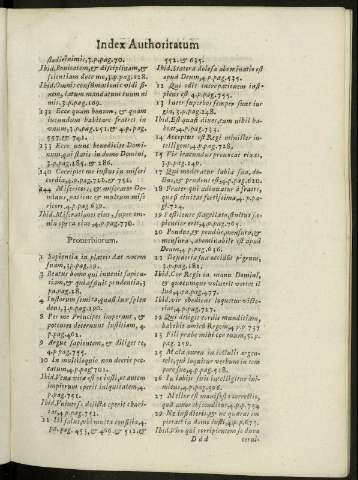 Index Authoritatum
studisti mis, 3.p.pag.70.
Ibid. Bonitatem, & disciplinam, &
scientiam doce me, 3.p.pag.128.
Ibid. Omni consummationis vidi fi-
nem, latum mandatum tuum ni-
mis, 3.p.pag.169.
132 Ecce quam bonum, & quam
iucundum habitare fratres in
unum, 3.p.pag.251. & 4.p.pag.
557. & 741.
133 Ecce nunc benedicite Domi-
num, qui statis in domo Domini,
3.p.pag.186.
140 Corripiet me iustus in miseri
cordia, 4.p.pag.728. & 756.
144 Misericors, & miserator Do-
minus, patiens & multum mise
ricors, 4.p.pag.630.
Ibid. Miserationes eius, super om-
nia opera eius, 4.p.pag.770.
Prouerbiorum.
2 Sapientia in plateis dat vocem
suam, 3.p.pag.30.
3 Beatus homo qui inuenit sapien-
tiam, & qui affluit prudentia, 3
p.pag.28.
4 Iustorum semita quasi lux splen
dens, 3.p.pag.190.
8 Per me Principes imperant, &
potentes decernunt iustitiam, 4
p.pag.461.
9 Argue sapientem, & diliget te,
4.p.pag.755.
10 In multiloquio non deerit pec-
catum, 4.p.pag.701.
Ibid. Vena vitæ est os iusti, os autem
impiorum operit iniquitatem, 4
p.pag.751.
Ibid. Vniuersa delicta operit chari-
tas, 4.p.pag.751.
11 Ibi salus, ubi multa consilia, 4.
p.pag.453. & 469. & 512. &
552. & 635.
Ibid. Statera dolosa abominatio est
apud Deum, 4.p.pag.535.
12 Qui odit increpationem insi-
piens est 4.p.pag.755.
13 Inter superbos semper sunt iur
gia, 3.p.pag.248.
Ibid. Est quasi diues, cum nihil ha-
beat, 4.p.pag.733.
14 Acceptus est Regi minister in-
telligens, 4.p.pag.718.
15 Vir iracundus prouocat rixas,
3.p.pag.240.
17 Qui moderatur labia sua, do-
ctus, & prudens est, 4.p.pag.620.
18 Frater qui adiuuatur à fratre,
quasi ciuitas fortissima, 4.p.pag.
724.
19 Pestilente flagellato, stultus sa-
pientior erit, 4.p.pag.705.
20 Pondus, & pondus, mensura, &
mensura, abominabile est apud
Deum, 4.p.pag.636.
21 Desideria sua occidit pigrum,
3.p.pag.162.
Ibid. Cor Regis in manu Domini,
& quocumque voluerit vertet il
lud, 4.p.pag.477.
Ibid. Vir obediens loquetur victo-
riar, 4.p.pag.717.
22 Qui diligit cordis munditiam,
habebit amicum Regem, 4.p.p.737
23 Fili præbe mihi cor tuum, 5.p.
pag.319.
25 Mala aurea in lectulis argen-
teis, qui loquitur verbum in tem
pore suo, 4.p.pag.518.
26 In labijs suis intelligitur ini-
micus, 4.p.pag.106.
27 Melior est manifesta correctio,
quàm amor absconditus, 4.p.p.754
29 Ne insidieris, & ne quæras im
pietatem in domo iusti, 4.p.p.677.
Ibid. Viro qui corripientem se dura
D d d cerui-